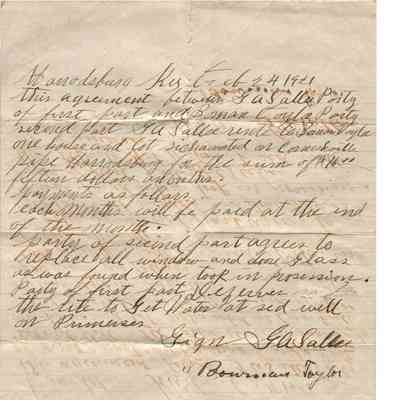 Harrodsburg Ky Feb 24 1921
this agreement between G A Sallee Party
of first part and Boman Taylor Party
second part G A Sallee rent to Boman Taylor
one house and lot on
pipe Harrodsburg for the sum of
fifteen dollars a month.
payments as follows,
each months will be paid at the end
of the month.
party of second part agrees to
replace all window and dore Glass
as was found when took in prosession.
Party of first part
the rite to Get Water at sed well
on Primeses
Sign G A Sallee
" Bowman Taylor